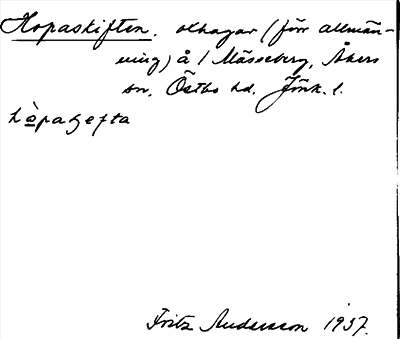 Hopaskiften. oxhagar (förr allmän-
ning) å / Mässeberg, Åkers
sn, Östbo hd. Jönk. l.
hòpaʃefta
Fritz Andersson 1937.